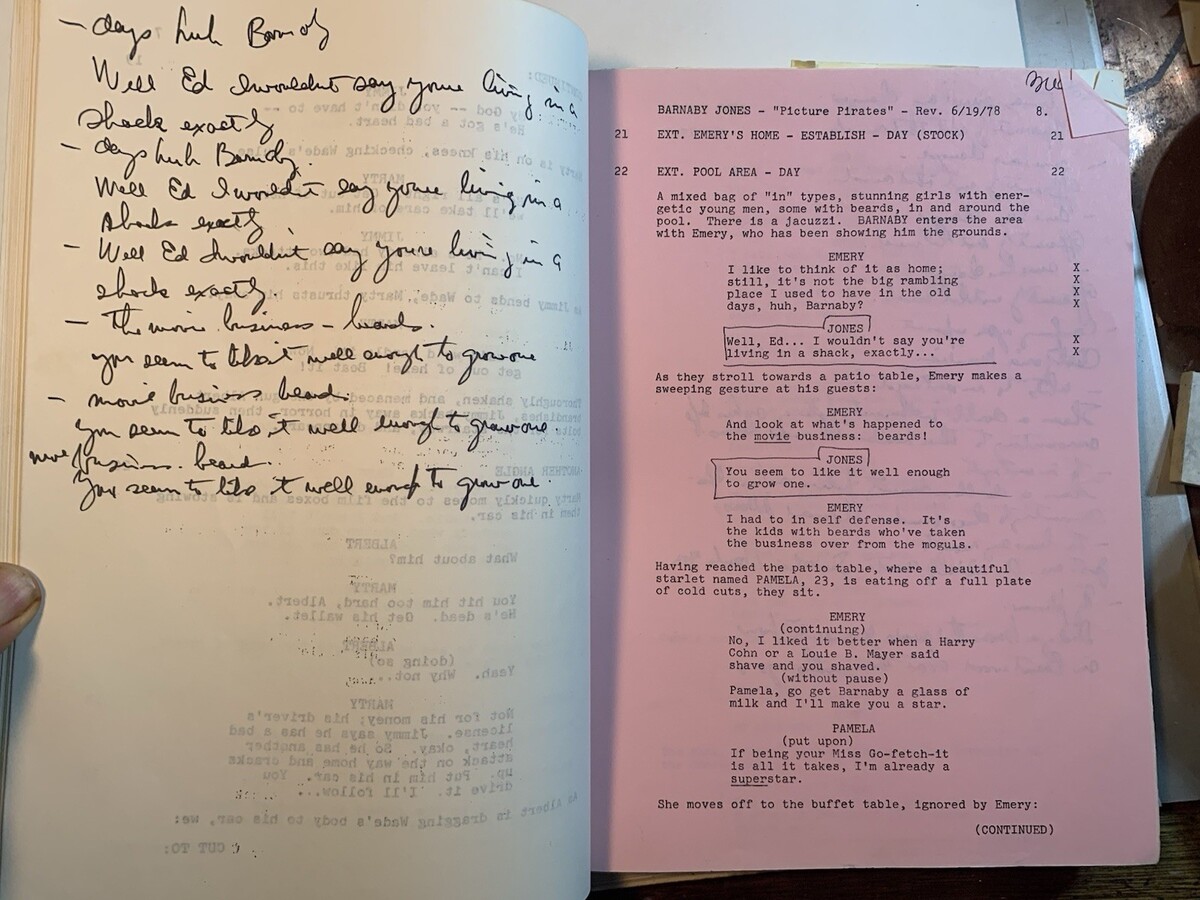 - days huh Barnaby
Well Ed I wouldnt say youre living in a
shack exactly
- days huh Barnaby.
Well Ed I wouldnt say youre living in a
shack exactly
- Well Ed I wouldnt say youre living in a
shack exactly.
- the movie business - beards.
you seem to like it well enough to grow one
- movie business beard.
you seem to like it well enough to grow one.
business. beard.
You seem to like it well enough to grow one.
ALBERT
What about him?
MARTY
You hit him too hard, Albert.
He's dead. Get his wallet.
ALBERT
(doing so)
Yeah. Why not....
MARTY
Not for his money; his driver's
license. Jimmy says he has a bad
heart, okay. So he has another
attack on the way home and cracks
up. Put him in his car. You
drive it. I'll follow...
As Albert is dragging Wade's body to his car, we:
CUT TO:
BARNABY JONES - "Picture Pirates" - Rev. 6/19/78 8.
21 EXT. EMERY'S HOME - ESTABLISH - DAY (STOCK) 21
22 EXT. POOL AREA - DAY 22
A mixed bag of "in" types, stunning girls with ener-
getic young men, some with beards, in and around the
pool. There is a jacuzzi. BARNABY enters the area
with Emery, who has been showing him the grounds.
EMERY
I like to think of it as home; X
still, it's not the big rambling X
place I used to have in the old X
days, huh, Barnaby? X
JONES
Well, Ed... I wouldn't say you're X
living in a shack, exactly... X
As they stroll towards a patio table, Emery makes a
sweeping gesture at his guests:
EMERY
And look at what's happened to
the movie business: beards!
JONES
You seem to like it well enough
to grow one.
EMERY
I had to in self defense. It's
the kids with beards who've taken
the business over from the moguls.
Having reached the patio table, where a beautiful
starlet named PAMELA, 23, is eating off a full plate
of cold cuts, they sit.
EMERY
(continuing)
No, I liked it better when a Harry
Cohn or a Louie B. Mayer said
shave and you shaved.
(without pause)
Pamela, go get Barnaby a glass of
milk and I'll make you a star.
PAMELA
(put upon)
If being your Miss Go-fetch-it
is all it takes, I'm already a
superstar.
She moves off to the buffet table, ignored by Emery:
(CONTINUED)